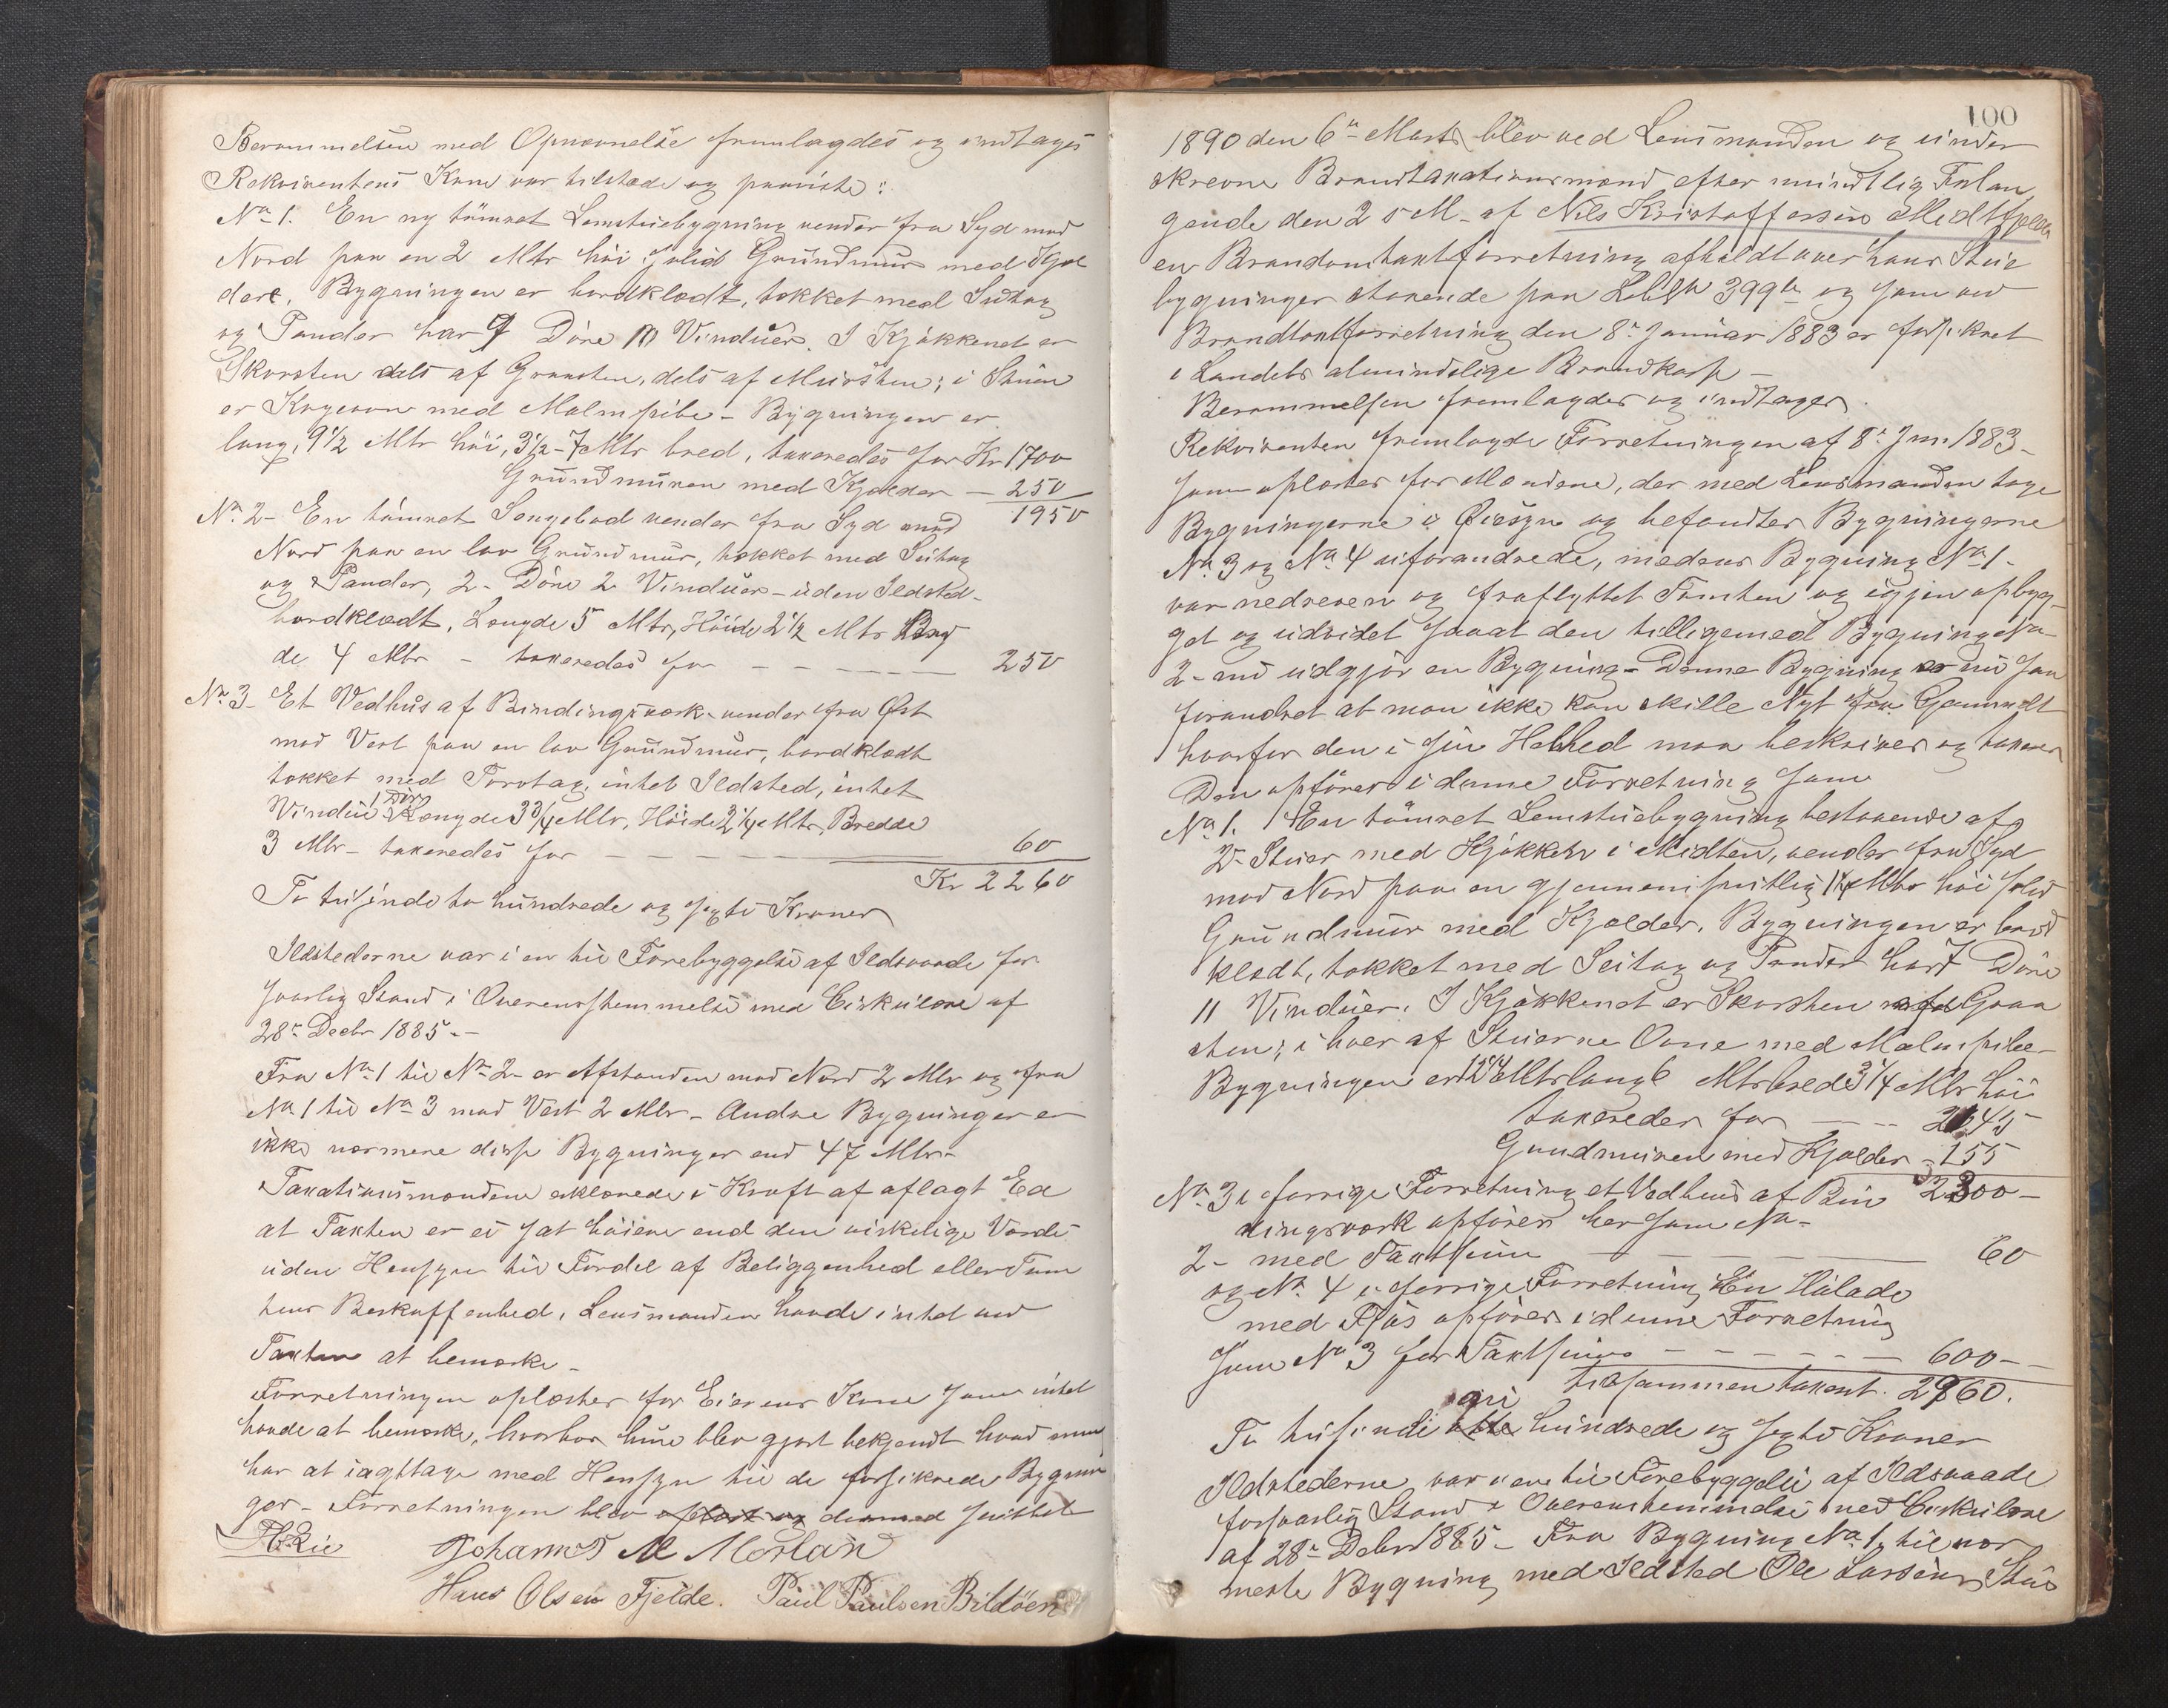 Berammelsen med Opnævnelse fremlagdes og indtages
Rekvirentens Kone var tilstæde og paaviste:
No 1. En ny tømret Lemstuebygning vender fra Syd mod
Nord paa en 2 Mtr høi solid Grundmur med Kjæl
dere. Bygningen er bordklædt, tækket med Sutag
og Pander har 7 Døre 10 Vinduer. I Kjøkkenet er
Skorsten dels af Graasten, dels af Mursten; i Stuen
er Kogeovn med Malmpibe - Bygningen er
lang, 9 1/2 Mtr høi, 3 1/2 - 7 Mtr bred, taxeredes for Kr 1700
Grundmuren med Kjælder — 250
1950
No 2 - En tømret Sengebod vender fra Syd mod
Nord paa en lav Grundmur, tækket med Sutag
og Pander, 2 - Døre 2 Vinduer - uden Ildsted -
bordklædt, Længde 5 Mtr, Høide 2 1/2 Mtr Bred
de 4 Mtr - taxeredes for — — — — 250
No 3 - Et Vedhus af Bindingsværk vender fra Øst
mod Vest paa en lav Grundmur, bordklædt
tækket med Torvtag, intet Ildsted, intet
1 Dør
Vindue Længde 3 3/4 Mtr, Høide 2 1/4 Mtr, Bredde
3 Mtr - taxeredes for — — — — 60
Kr 2260
To tusinde to hundrede og sexti Kroner
Ildstederne var i en til Forebyggelse af Ildsvaade for
svarlig Stand i Overensstemmelse med Cirkulære af
28de Decbr 1885. -
Fra No 1 til No 2 - er Afstanden mod Nord 2 Mtr og fra
No 1 til No 3 mod Vest 2 Mtr - Andre Bygninger er
ikke nærmere disse Bygninger end 47 Mtr -
Taxationsmændene erklærede i Kraft af aflagt Ed
at Taxten er ei sat høiere end den virkelige Værdi
uden Hensyn til Fordel af Beliggenhed eller Tom
tens Beskaffenhed, Lensmanden havde intet ved
Taxten at bemærke -
Forretningen oplæstes for Eierens Kone som intet
havde at bemærke, hvorhos hun blev gjort bekjendt hvad man
har at iagttage med Hensyn til de forsikrede Bygnin
ger - Forretningen blev oplæst og dermed sluttet
Johannes M Morland
Hans Olsen Fjelde. Paul Paulsen Bildøen
100
1890 den 6te Marts blev ved Lensmanden og under
skrevne Brandtaxationsmænd efter mundtlig Forlan
gende den 2 s M - af Nils Kristoffersen Midtfjeld
en Brandomtaxtforretning afholdt over hans Stue
bygninger staaende paa Lbs No 399 a og som ved
Brandtaxtforretning den 8de Januar 1883 er forsikret
i Landets almindelige Brandkasse -
Berammelsen fremlagdes og indtages.
Rekvirenten fremlagde Forretningen af 8de Jan. 1883 -
som oplæstes for Mændene, der med Lensmanden tage
Bygningerne i Øiesyn og befandtes Bygningerne
No 3 og No 4 uforandrede, medens Bygning No 1 -
var nedreven og fraflyttet Tomten og igjen opbyg
get og udvidet saaat den tilligemed Bygning No -
2 - nu udgjør en Bygning - Denne Bygning er nu saa
forandret at man ikke kan skille Nyt fra Gammelt
hvorfor den i sin Helhed maa beskrives og taxeres
Den opføres i denne Forretning som
No 1. En tømret Lemstuebygning bestaaende af
2 - Stuer med Kjøkken i Midten, vender fra Syd
mod Nord paa en gjennemsnitlig 1 1/4 Mtr høi solid
Grundmur med Kjælder, Bygningen er bord
klædt, tækket med Sutag og Pander har 7 Døre
11 Vinduer. I Kjøkkenet er Skorsten af Graa
sten; i hver af Stuerne Ovne med Malmpiber
Bygningen er 12 1/4 Mtr lang 6 Mtr bred 3 1/4 Mtr høi
taxeredes for — — 2145
Grundmuren med Kjælder - 155
2300 -
No 3 i forrige Forretning et Vedhus af Bin
dingsværk opføres her som No -
2 - med Taxtsum — — — 60
og No 4 i forrige Forretning En Hølade
med Fjøs opføres i denne Forretning
som No 3 for Taxtsum — — — — 600 -
tilsammen taxert. 2960.
ni
To tusinde otte hundrede og sexti Kroner
Ildstederne var i en til Forebyggelse af Ildsvaade
forsvarlig Stand i Overensstemmelse med Cirkulære
af 28de Debr 1885 - Fra Bygning No 1, til nær
meste Bygning med Ildsted Ole Larsens Stue